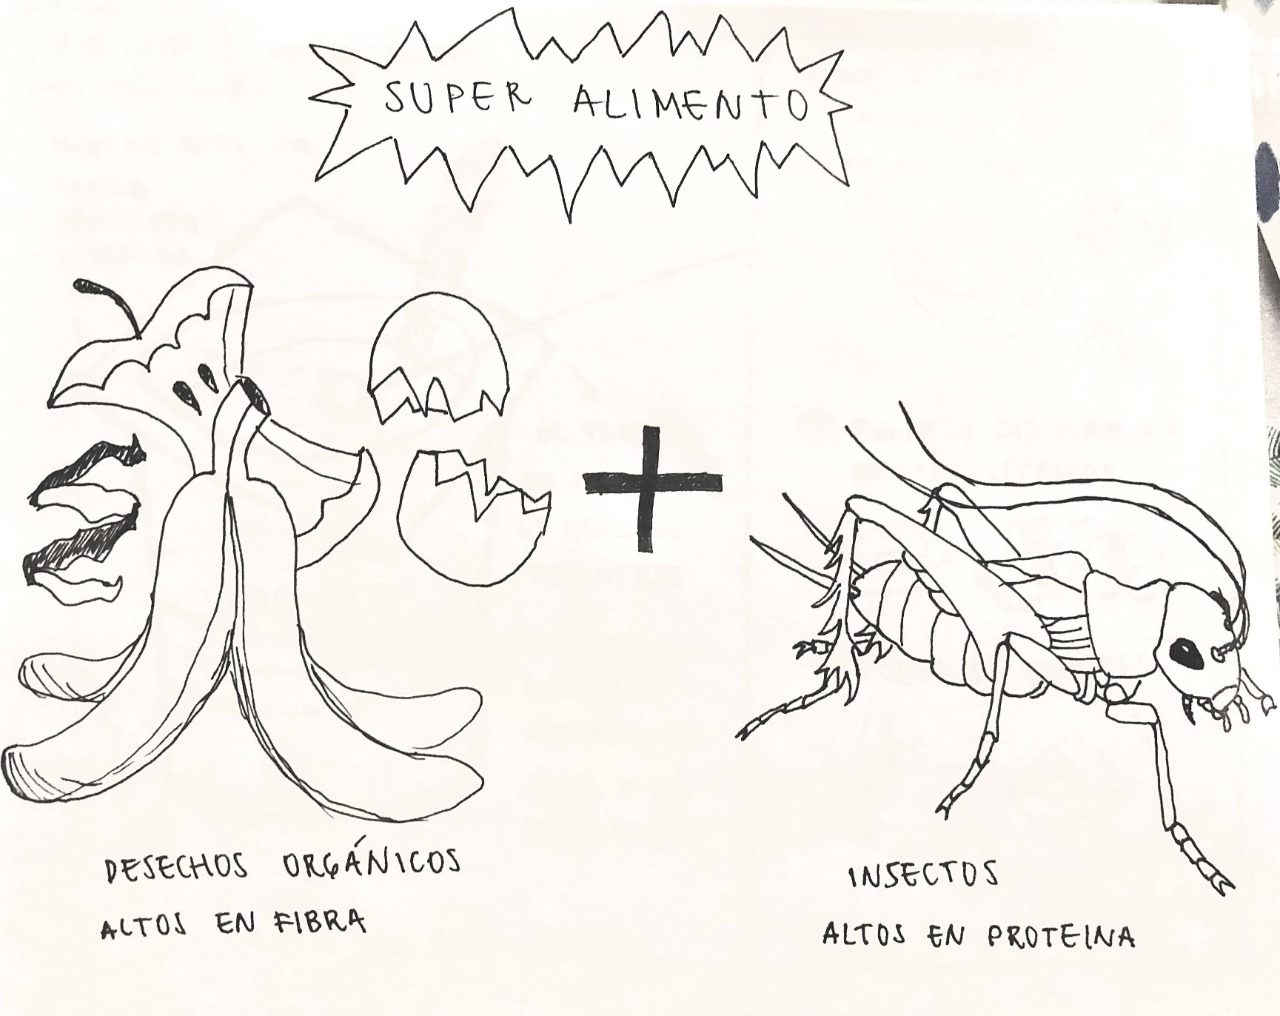 SUPER ALIMENTO
DESECHOS ORGÁNICOS
ALTOS EN FIBRA
INSECTOS
ALTOS EN PROTEINA